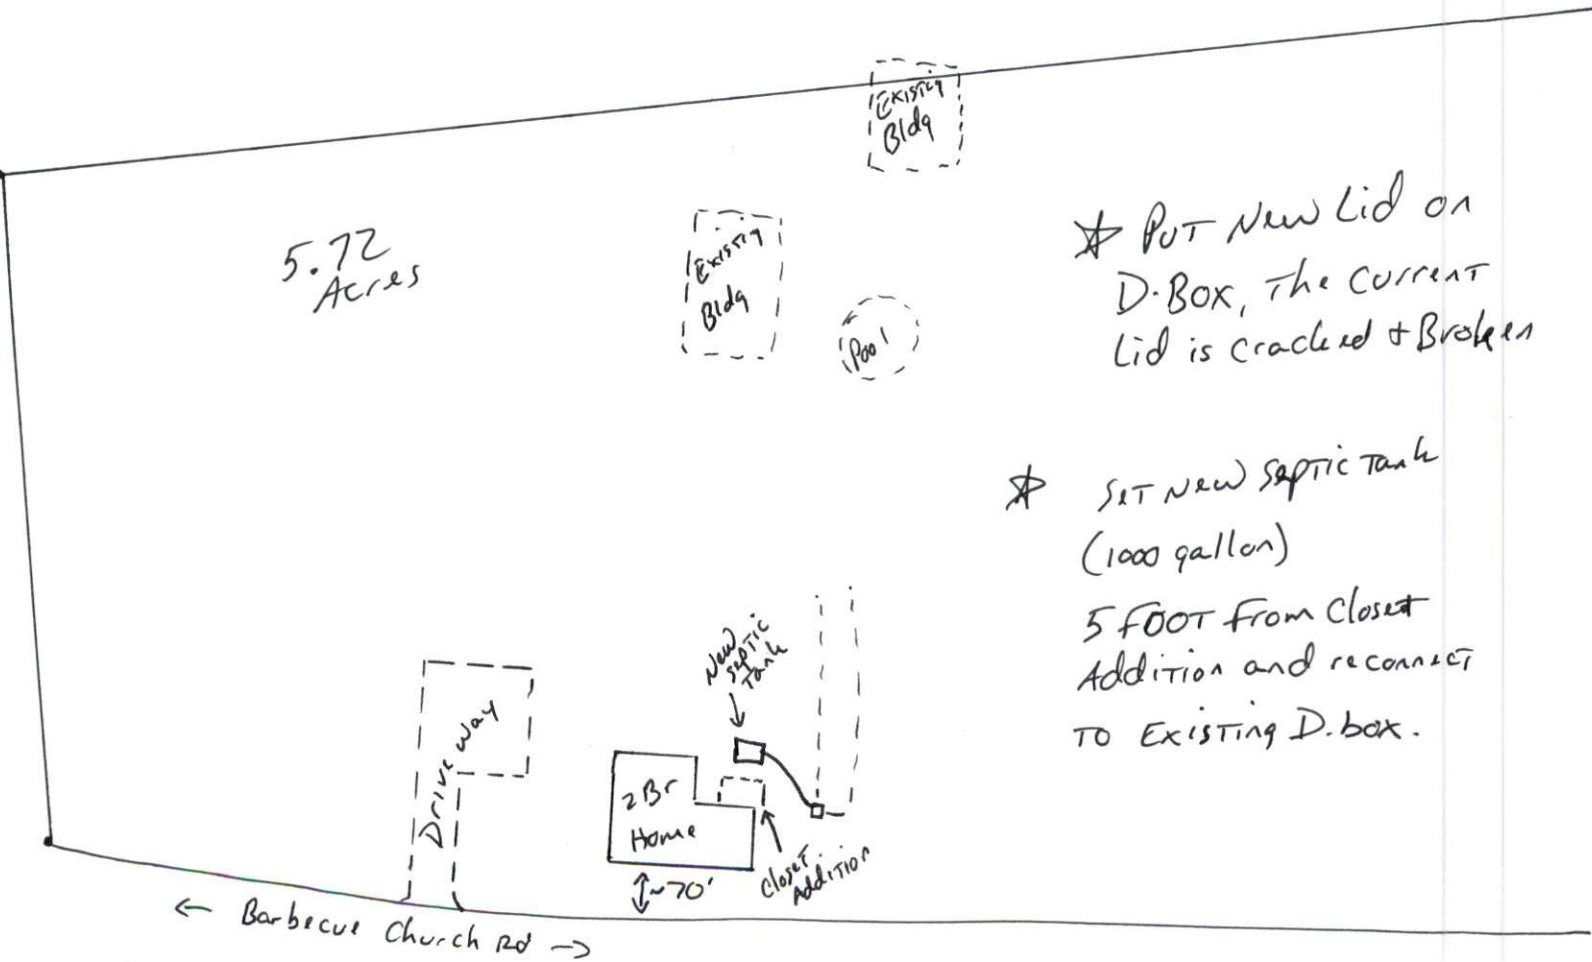 Existing
Bldg
5.72
Acres
Existig
Bldg
Pool
* PUT New Lid on
D-Box, The Current
Lid is Cracked + Broken
* SET New Septic Tank
(1000 gallon)
5 FOOT From Closet
Addition and reconnect
TO Existing D.box.
New
Septic
Tank
Drive way
2 Br
Home
~70'
Closet
Addition
← Barbecue Church Rd →